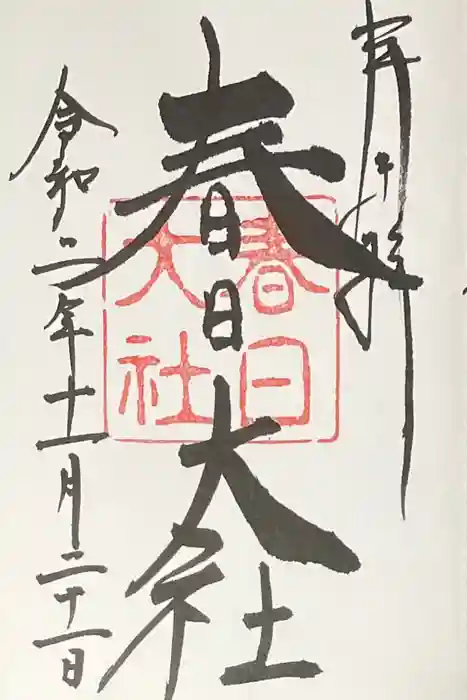 奉拝
春日大社
春日
大社
令和二年十一月二十一日